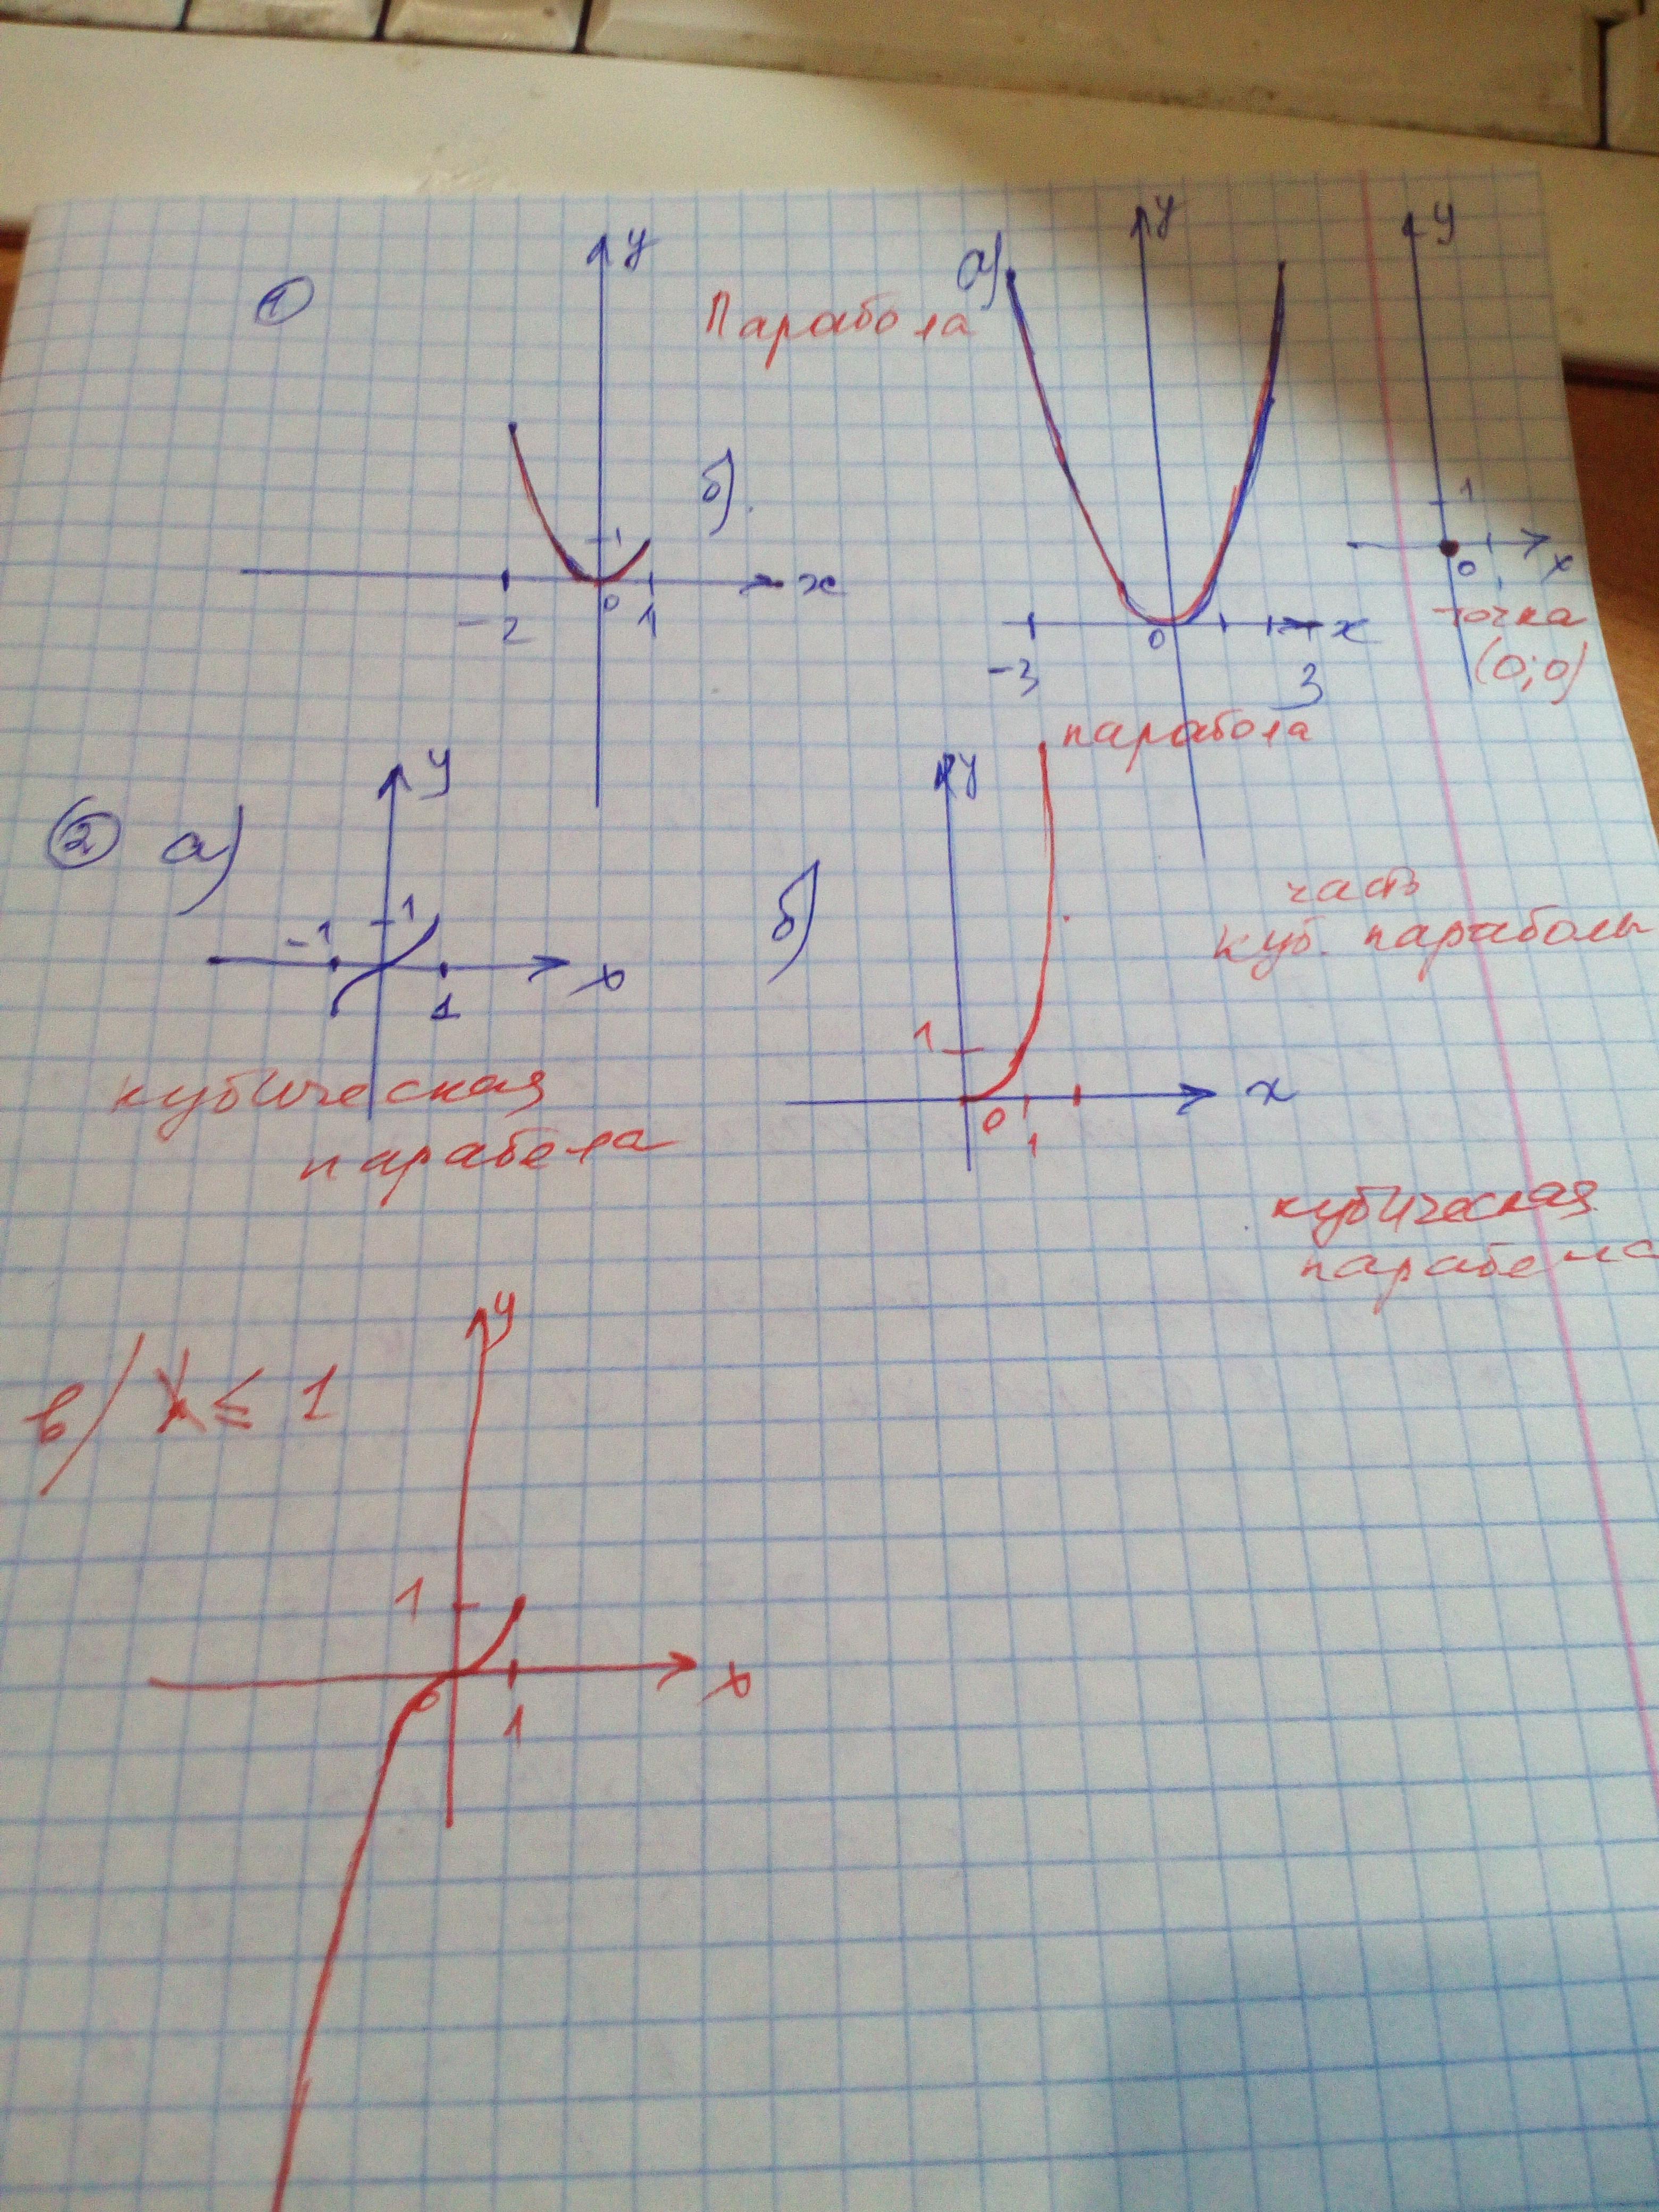 1
y
Парабола
а)
y
y
б)
1
1
x
0
x
-2
0
1
x
0
точка
-3
3
(0;0)
парабола
2 а)
y
y
б)
часть
куб. параболы
-1
1
x
1
1
x
кубическая
0
парабола
1
кубическая
парабола
y
в) x ≤ 1
1
0
x
1